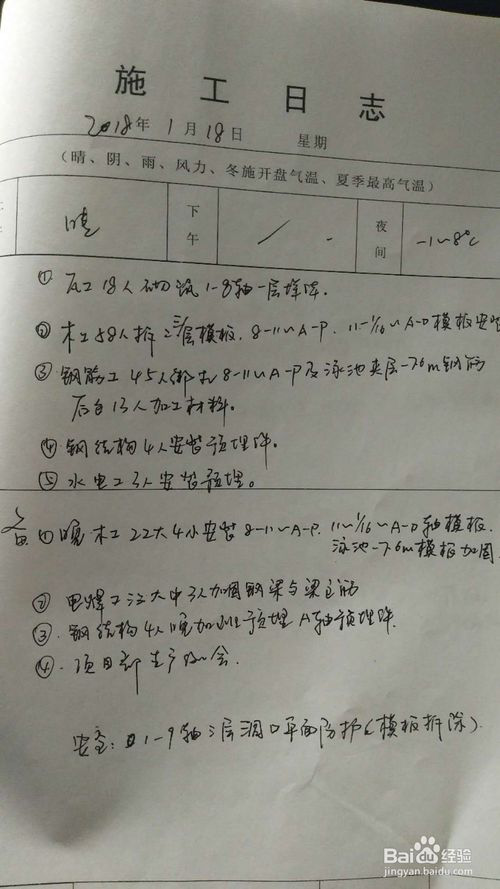 施 工 日 志
2018年 1月 18日 星期
（晴、阴、雨、风力、冬施开盘气温、夏季最高气温）
下午 / - 夜间 -1~8°C
① 瓦工18人砌筑1-8轴一层
② 木工58人拆二层模板. 8-11~A-P. 11-1/16~A-D模板安
③ 钢筋工45人绑扎8-11~A-P及泳池夹层-7.6m钢筋
后台13人加工材料。
④ 钢结构4人安装预埋件。
⑤ 水电工3人安装预埋。
备 ① 晚 木工22大4小安装8-11~A-P. 11~1/16~A-D轴模板.
泳池-7.6m模板加固
② 电焊工 3人加固钢梁与梁主筋
③. 钢结构4人晚加班预埋A轴预埋件.
④. 项目部生产例会.
安全: 1-9轴二层洞口平面防护(模板拆除)
Baidu经验
jingyan.baidu.com